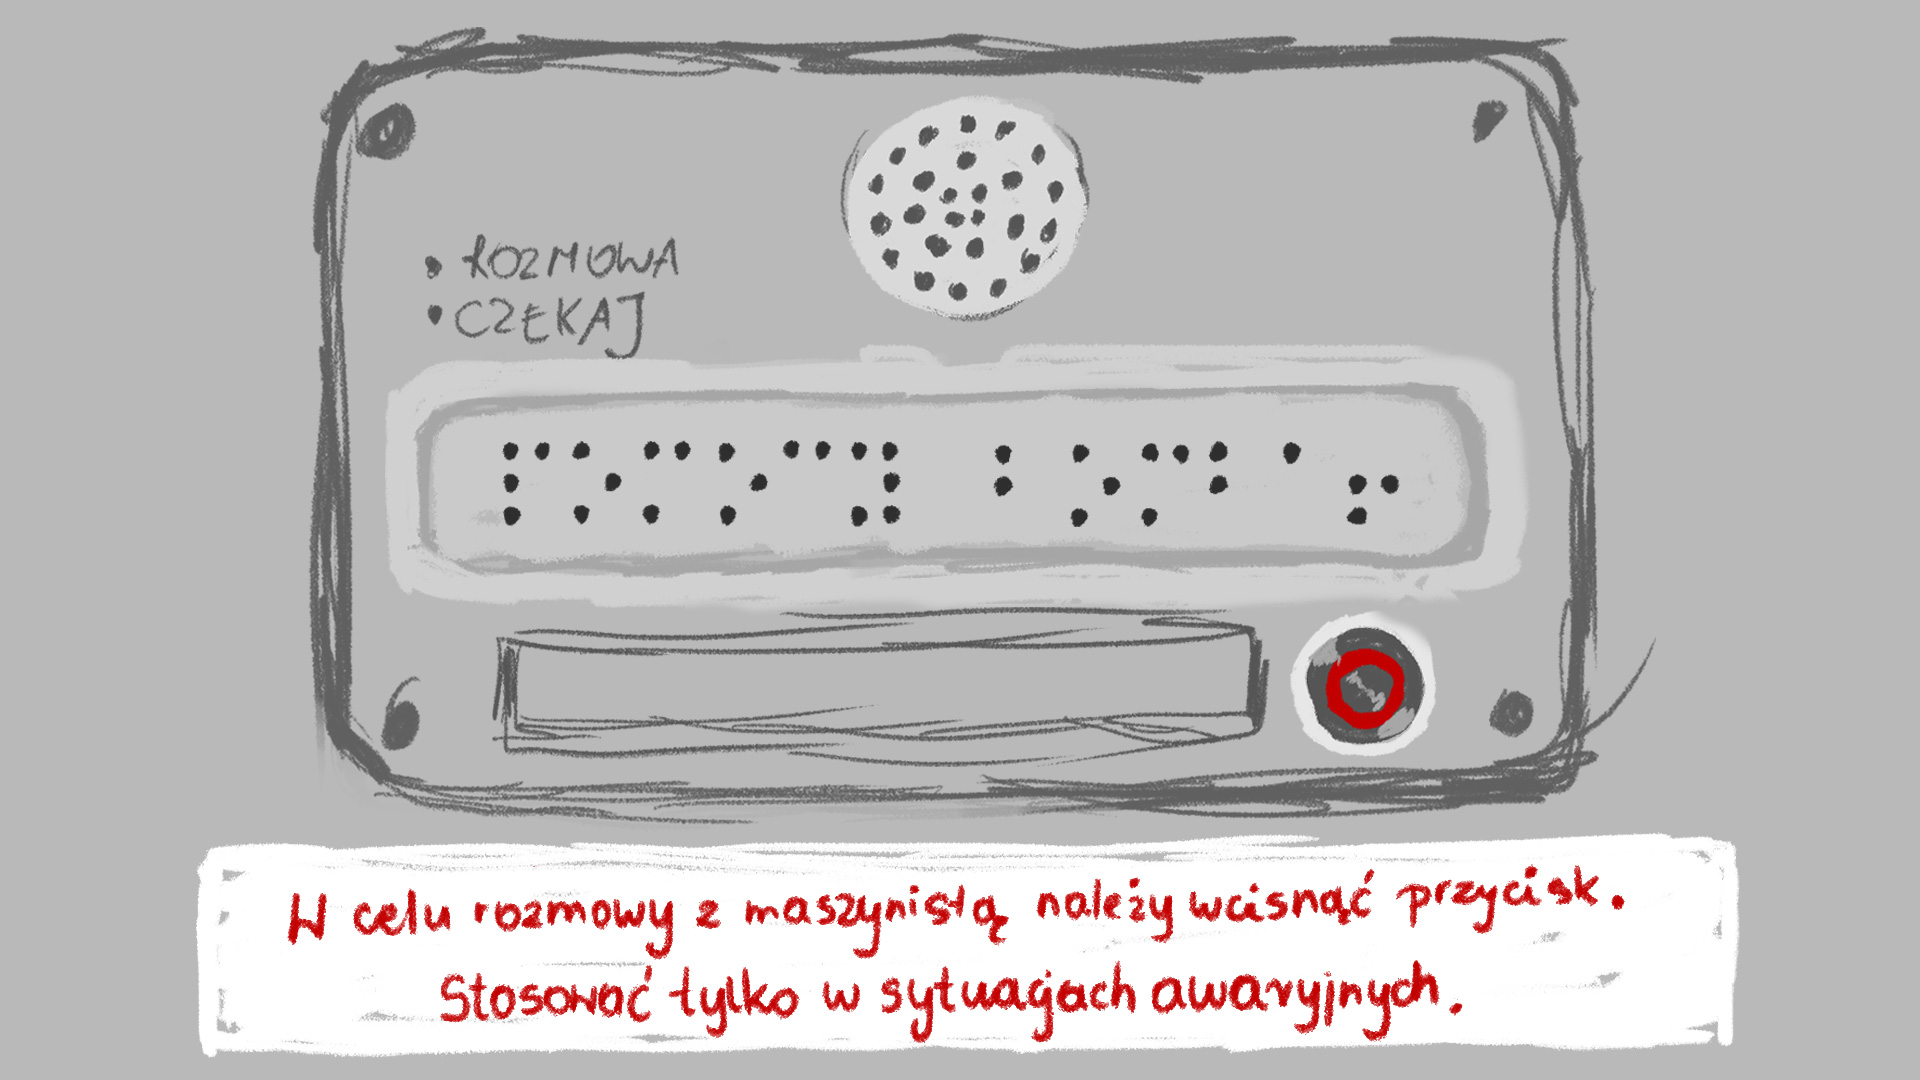 ROZMOWA
CZEKAJ
⠏⠕⠍⠕⠉⠽ ⠃⠕⠍⠃⠁⠖
W celu rozmowy z maszynistą należy wcisnąć przycisk.
Stosować tylko w sytuacjach awaryjnych.